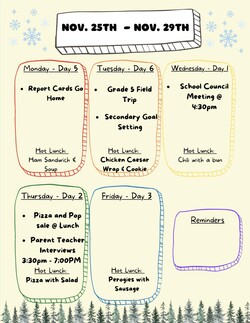 NOV. 25TH – NOV. 29TH
Monday - Day 5
• Report Cards Go
Home
Hot Lunch:
Ham Sandwich &
Soup
Tuesday - Day 6
• Grade 5 Field
Trip
• Secondary Goal
Setting
Hot Lunch:
Chicken Caesar
Wrap & Cookie
Wednesday - Day 1
• School Council
Meeting @
4:30pm
Hot Lunch:
Chili with a bun
Thursday - Day 2
• Pizza and Pop
sale @ Lunch
• Parent Teacher
Interviews
3:30pm - 7:00PM
Hot Lunch:
Pizza with Salad
Friday - Day 3
Hot Lunch:
Perogies with
Sausage
Reminders